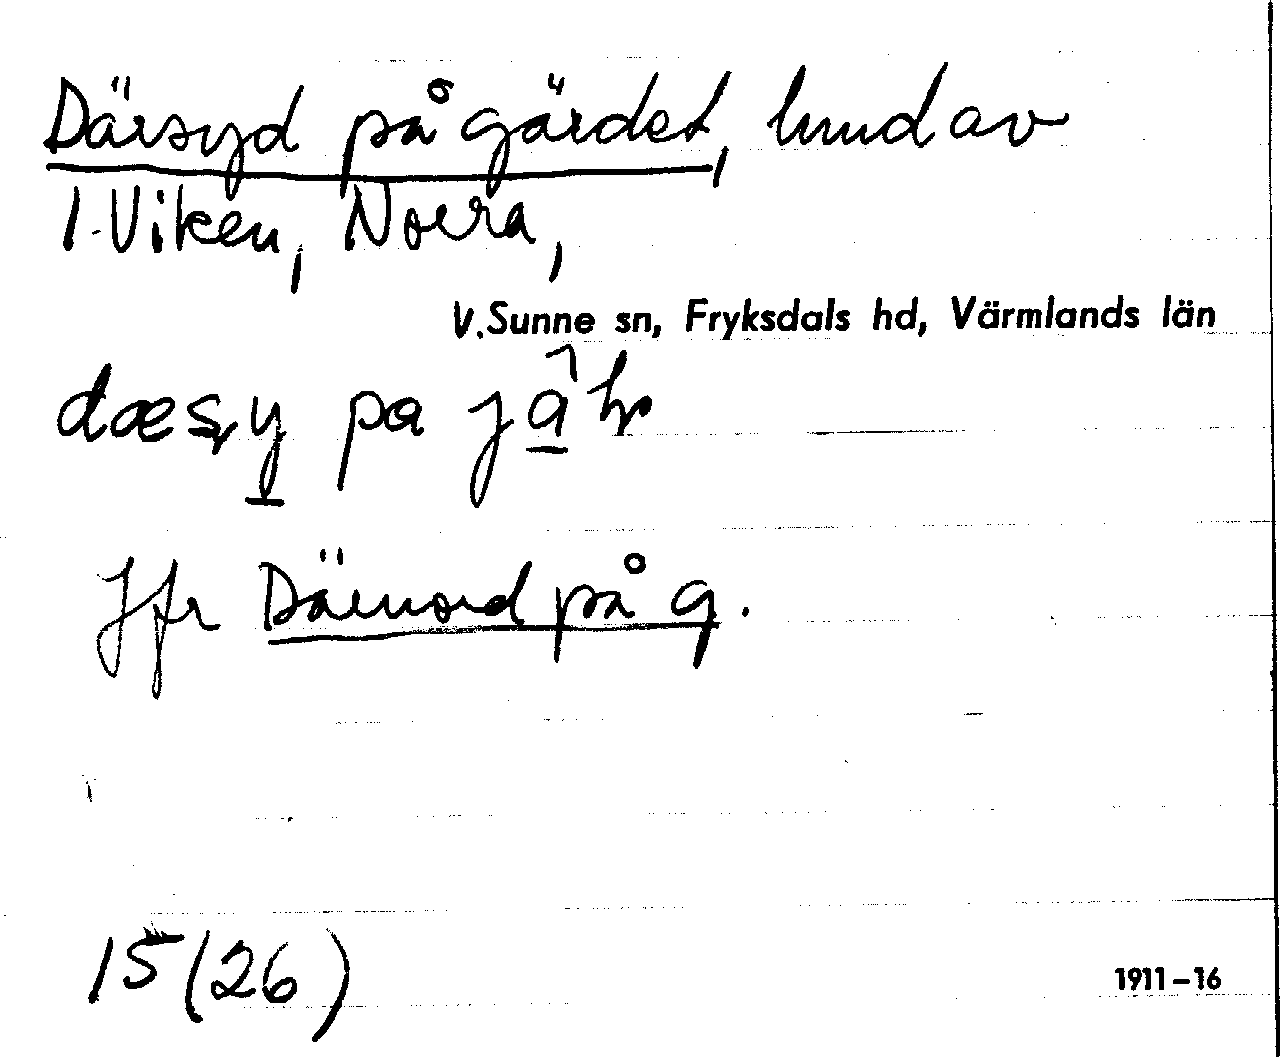 Därsyd på gärdet, hmd av
1 Viken, Norra,
V. Sunne sn, Fryksdals hd, Värmlands län
pa
Jfr Därnord på g.
15 (26)
1911-16